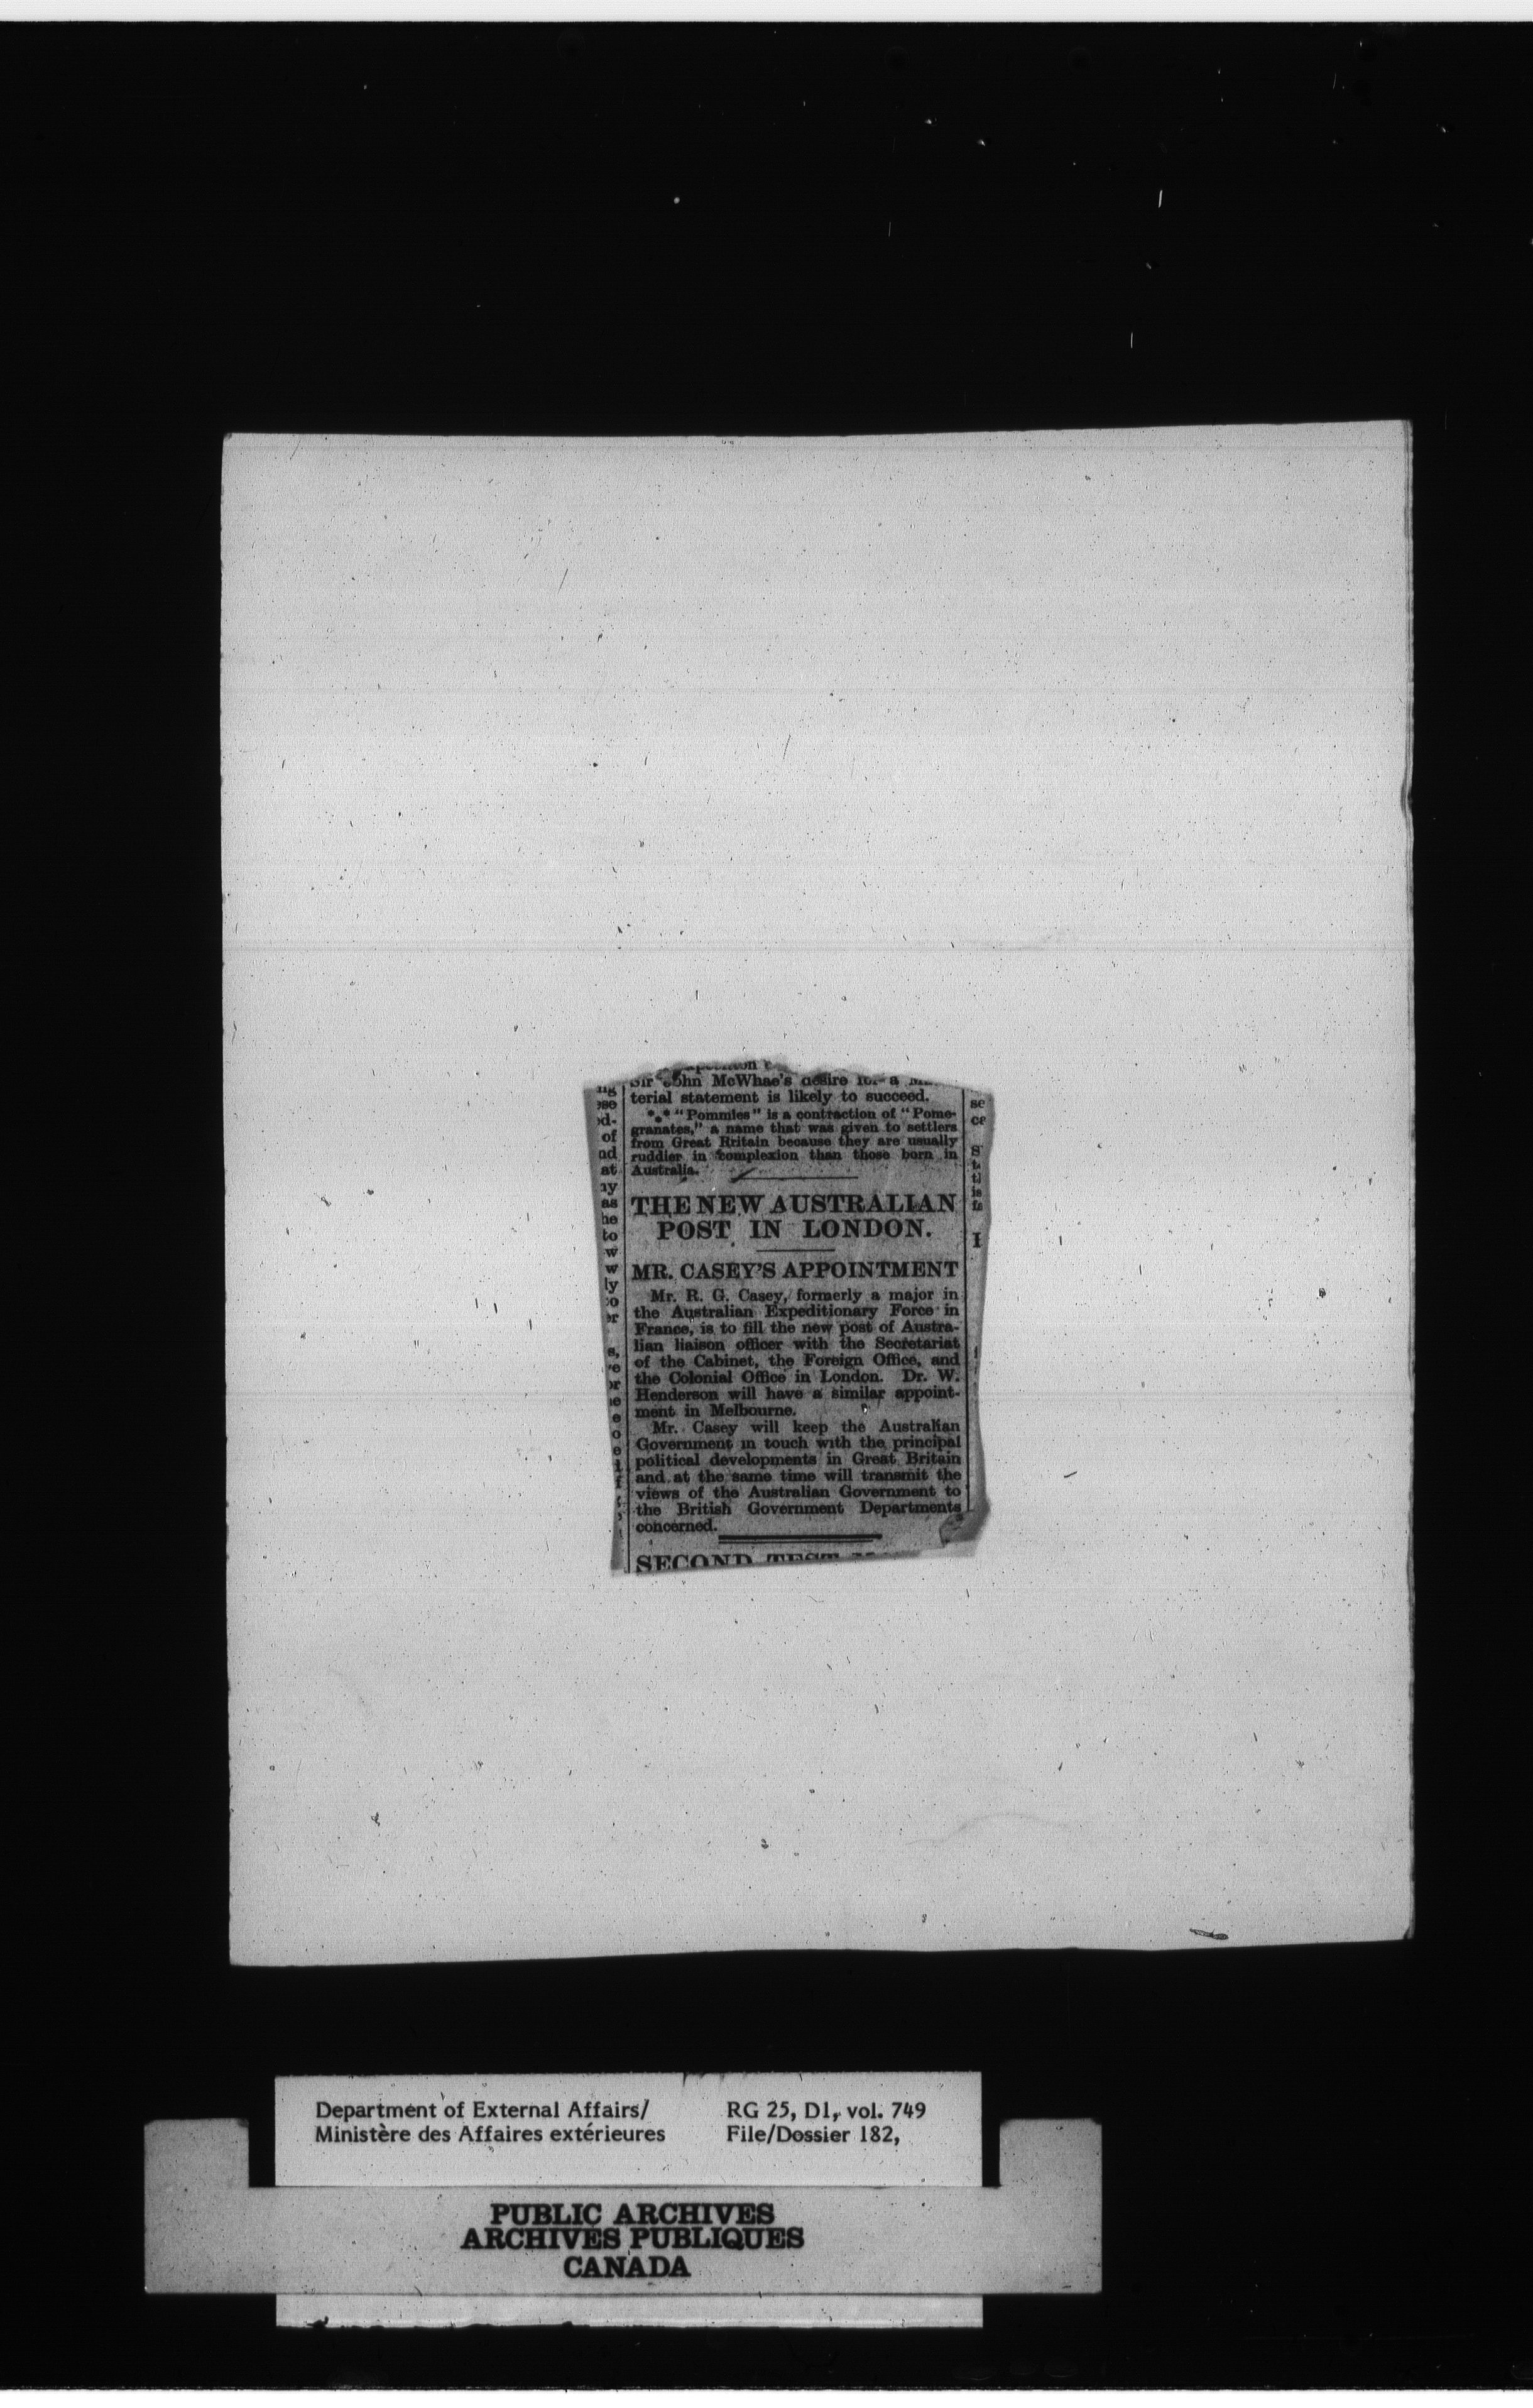 Sir John McWhae's desire for a
terial statement is likely to succeed.
*** "Pommies" is a contraction of "Pome-
granates," a name that was given to settlers
from Great Britain because they are usually
ruddier in complexion than those born in
Australia.
THE NEW AUSTRALIAN
POST IN LONDON.
MR. CASEY'S APPOINTMENT
Mr. R. G. Casey, formerly a major in
the Australian Expeditionary Force in
France, is to fill the new post of Austra-
lian liaison officer with the Secretariat
of the Cabinet, the Foreign Office, and
the Colonial Office in London. Dr. W.
Henderson will have a similar appoint-
ment in Melbourne.
Mr. Casey will keep the Australian
Government in touch with the principal
political developments in Great Britain
and at the same time will transmit the
views of the Australian Government to
the British Government Departments
concerned.
SECOND TEST
ng
ese
d-
of
nd
at
ny
as
he
to
w
w
ly
to
er
s,
re
or
e
e
o
e
se
ce
S
t
tl
is
fa
I
Department of External Affairs/
Ministère des Affaires extérieures
RG 25, D1, vol. 749
File/Dossier 182,
PUBLIC ARCHIVES
ARCHIVES PUBLIQUES
CANADA